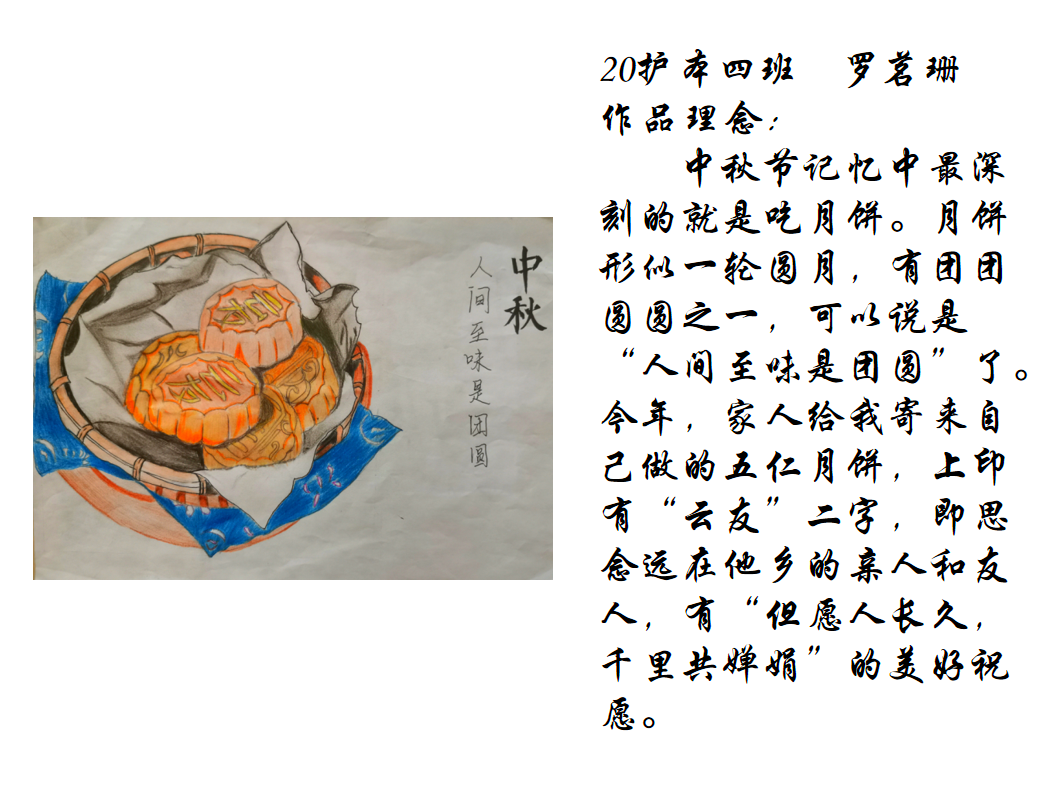 中秋
人间至味是团圆
20护本四班 罗茗珊
作品理念：
中秋节记忆中最深
刻的就是吃月饼。月饼
形似一轮圆月，有团团
圆圆之一，可以说是
“人间至味是团圆”了。
今年，家人给我寄来自
己做的五仁月饼，上印
有“云友”二字，即思
念远在他乡的亲人和友
人，有“但愿人长久，
千里共婵娟”的美好祝
愿。